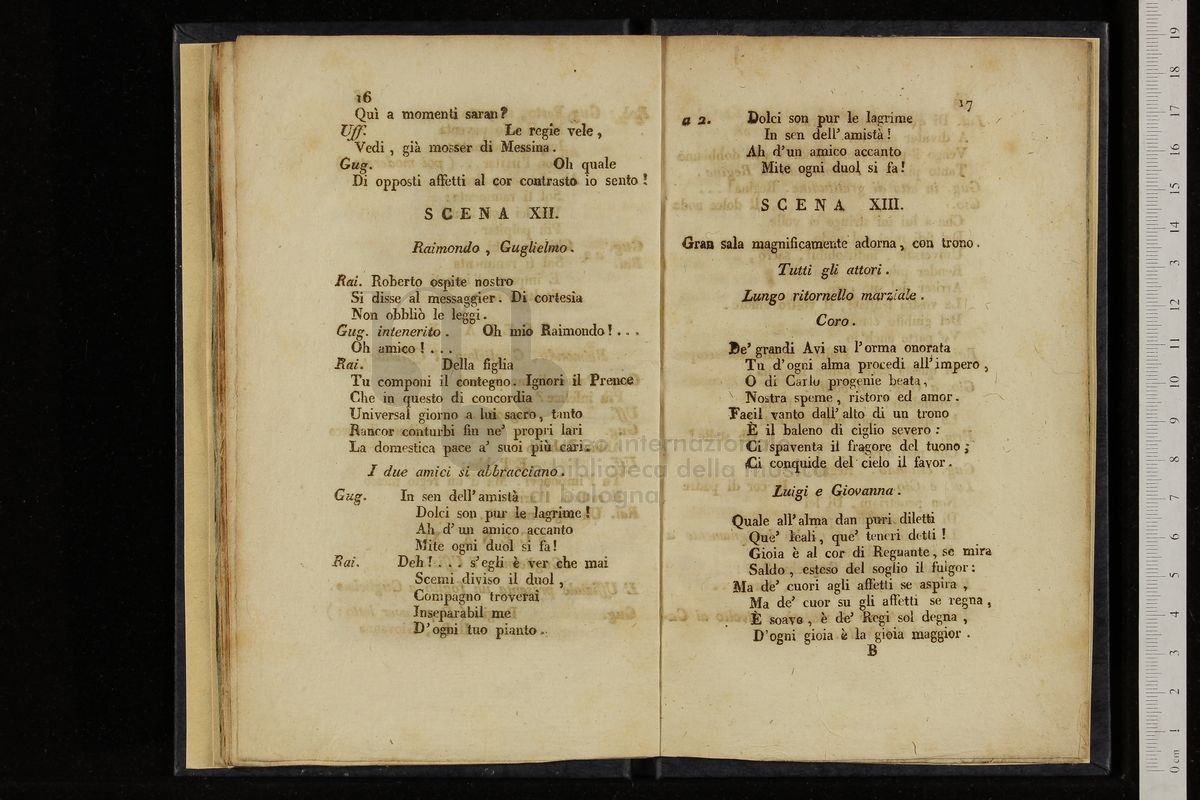 16
Quì a momenti saran?
Uff. Le regie vele,
Vedi, già mosser di Messina.
Gug. Oh quale
Di opposti affetti al cor contrasto io sento!
SCENA XII.
Raimondo, Guglielmo.
Rai. Roberto ospite nostro
Si disse al messaggier. Di cortesia
Non obbliò le leggi.
Gug. intenerito. Oh mio Raimondo!...
Oh amico!...
Rai. Della figlia
Tu componi il contegno. Ignori il Prence
Che in questo di concordia
Universal giorno a lui sacro, tanto
Rancor conturbi fin ne' proprj lari
La domestica pace a' suoi più cari.
I due amici si abbracciano.
Gug. In sen dell'amistà
Dolci son pur le lagrime!
Ah d'un amico accanto
Mite ogni duol si fa!
Rai. Deh!... s'egli è ver che mai
Scemi diviso il duol,
Compagno troverai
Inseparabil me
D'ogni tuo pianto.
17
a 2. Dolci son pur le lagrime
In sen dell'amistà!
Ah d'un amico accanto
Mite ogni duol si fa!
SCENA XIII.
Gran sala magnificamente adorna, con trono.
Tutti gli attori.
Lungo ritornello marziale.
Coro.
De' grandi Avi su l'orma onorata
Tu d'ogni alma procedi all'impero,
O di Carlo progenie beata,
Nostra speme, ristoro ed amor.
Facil vanto dall'alto di un trono
È il baleno di ciglio severo:
Ci spaventa il fragore del tuono;
Ci conquide del cielo il favor.
Luigi e Giovanna.
Quale all'alma dan puri diletti
Que' leali, que' teneri detti!
Gioia è al cor di Regnante, se mira
Saldo, esteso del soglio il fulgor:
Ma de' cuori agli affetti se aspira,
Ma de' cuor su gli affetti se regna,
È soave, è de' Regi sol degna,
D'ogni gioia è la gioia maggior.
B
museo internazionale
e biblioteca della musica
di bologna
0 cm 1 2 3 4 5 6 7 8 9 10 11 12 13 14 15 16 17 18 19